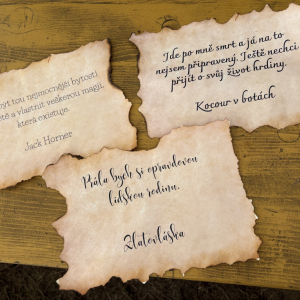 být tou nejmocnější bytostí
ě a vlastnit veškerou magii,
která existuje.
Jack Horner
Jde po mně smrt a já na to
nejsem připravený. Ještě nechci
přijít o svůj život hrdiny.
Kocour v botách
Přála bych si opravdovou
lidskou rodinu.
Zlatovláska